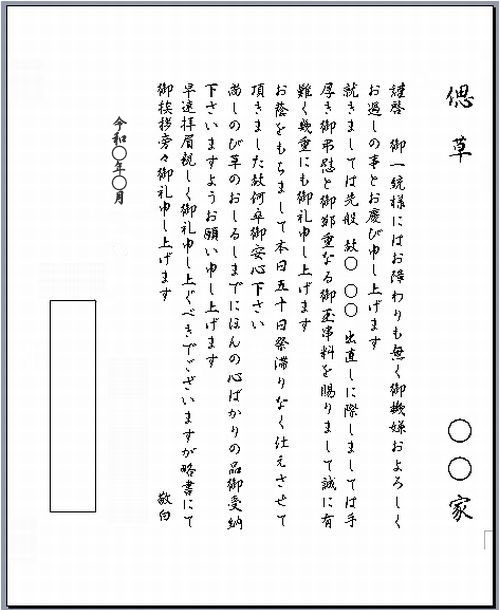 偲草
〇〇家
謹啓 御一統様にはお障わりも無く御機嫌およろしく
お過しの事とお慶び申し上げます
就きましては先般 故〇 〇〇 出直しに際しましては手
厚き御弔慰と御鄭重なる御玉串料を賜りまして誠に有
難く幾重にも御礼申し上げます
お蔭をもちまして本日五十日祭滞りなく仕えさせて
頂きました故何卒御安心下さい
尚しのび草のおしるしまでにほんの心ばかりの品御受納
下さいますようお願い申し上げます
早速拝眉親しく御礼申し上ぐべきでございますが略書にて
御挨拶旁々御礼申し上げます
敬白
令和〇年〇月